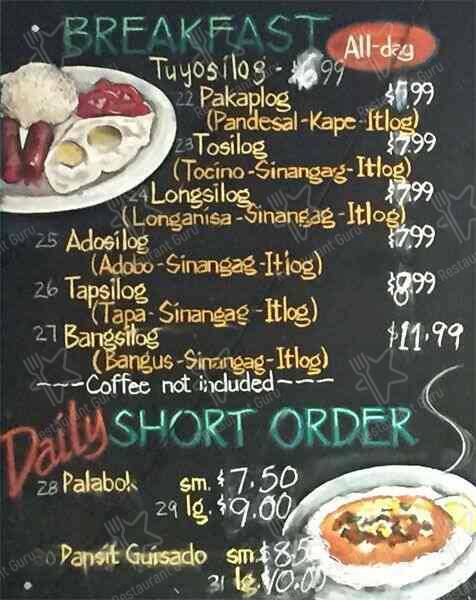 BREAKFAST All-day
Tuyosilog - $6.99
22 Pakaplog $7.99
(Pandesal-Kape-Itlog)
23 Tosilog $7.99
(Tocino-Sinangag-Itlog)
24 Longsilog $7.99
(Longanisa-Sinangag-Itlog)
25 Adosilog $7.99
(Adobo-Sinangag-Itlog)
26 Tapsilog $8.99
(Tapa-Sinangag-Itlog)
27 Bangsilog $11.99
(Bangus-Sinangag-Itlog)
~~~Coffee not included~~~
Daily SHORT ORDER
28 Palabok sm. $7.50
29 lg. $9.00
Pansit Guisado sm. $8.50
31 lg. 10.00
Restaurant Guru